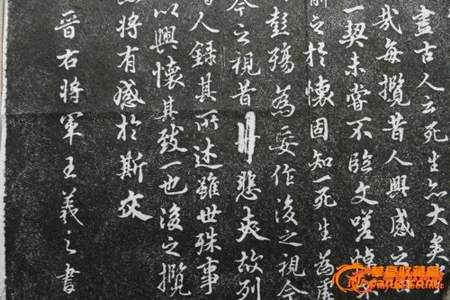 盡古人云死生亦大矣
哉每攬昔人興感之
一契未嘗不臨文嗟悼
之於懷固知一死生為虛
彭殤為妄作後之視今
今之視昔悲夫故列
時人錄其所述雖世殊事
以興懷其致一也後之攬
將有感於斯文
晉右將軍王羲之書
华夏收藏网